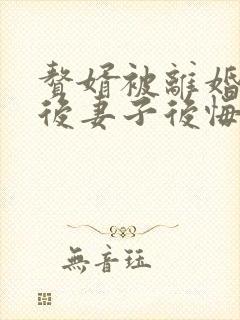 贅婿被離婚
後妻子後悔
無音珏